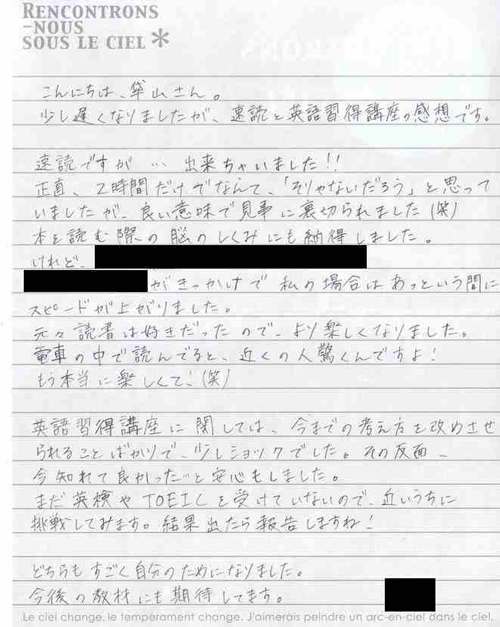 RENCONTRONS
-NOUS
SOUS LE CIEL*
こんにちは、犂山さん。
少し遅くなりましたが、速読と英語習得講座の感想です。
速読ですが…出来ちゃいました!!
正直、2時間だけでなんて、「そりゃないだろう」と思って
いましたが、良い意味で見事に裏切られました(笑)
本を読む際の脳のしくみにも納得しました。
けれど、
がきっかけで私の場合はあっという間に
スピードが上がりました。
元々読書は好きだったので、より楽しくなりました。
電車の中で読んでると、近くの人驚くんですよ!
もう本当に楽しくて!(笑)
英語習得講座に関しては、今までの考え方を改めさせ
られることばかりで、少しショックでした。その反面、
今知れて良かった…と安心もしました。
まだ英検やTOEICを受けていないので、近いうちに
挑戦してみます。結果出たら報告しますね!
どちらもすごく自分のためになりました。
今後の教材にも期待してます。
Le ciel change, le temperament change. J'aimerais peindre un arc-en-ciel dans le ciel.